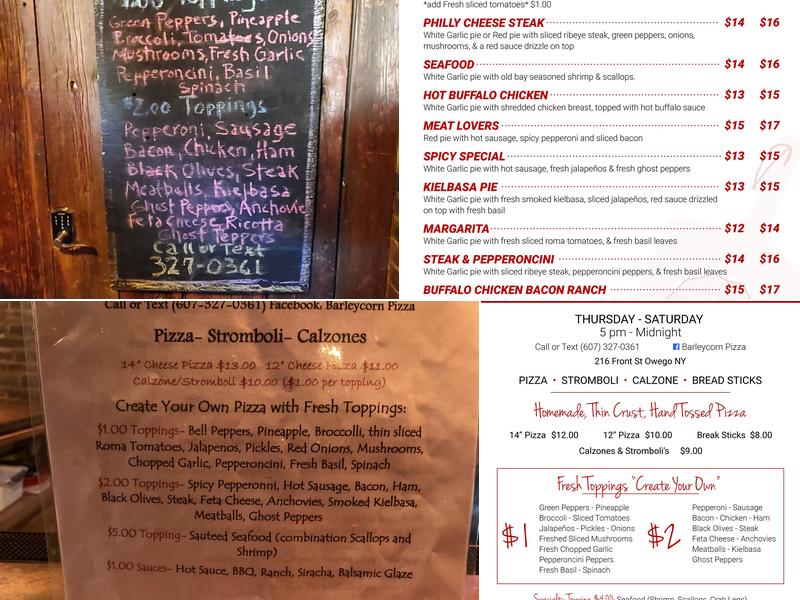 $1.00 Toppings
Green Peppers, Pineapple
Broccoli, Tomatoes, Onions
Mushrooms, Fresh Garlic
Pepperoncini, Basil
Spinach
$2.00 Toppings
Pepperoni, Sausage
Bacon, Chicken, Ham
Black Olives, Steak
Meatballs, Kielbasa
Ghost Peppers, Anchovie
Feta Cheese, Ricotta
Ghost Peppers
Call or Text
327-0361
*add Fresh sliced tomatoes* $1.00
PHILLY CHEESE STEAK $14 $16
White Garlic pie or Red pie with sliced ribeye steak, green peppers, onions,
mushrooms, & a red sauce drizzle on top
SEAFOOD $14 $16
White Garlic pie with old bay seasoned shrimp & scallops.
HOT BUFFALO CHICKEN $13 $15
White Garlic pie with shredded chicken breast, topped with hot buffalo sauce
MEAT LOVERS $15 $17
Red pie with hot sausage, spicy pepperoni and sliced bacon
SPICY SPECIAL $13 $15
White Garlic pie with hot sausage, fresh jalapeños & fresh ghost peppers
KIELBASA PIE $13 $15
White Garlic pie with fresh smoked kielbasa, sliced jalapeños, red sauce drizzled
on top with fresh basil
MARGARITA $12 $14
White Garlic pie with fresh sliced roma tomatoes, & fresh basil leaves
STEAK & PEPPERONCINI $14 $16
White Garlic pie with sliced ribeye steak, pepperoncini peppers, & fresh basil leaves
BUFFALO CHICKEN BACON RANCH $15 $17
Call or Text (607-327-0361) Facebook, Barleycorn Pizza
Pizza- Stromboli- Calzones
14" Cheese Pizza $13.00 12" Cheese Pizza $11.00
Calzone/Stromboli $10.00 ($1.00 per topping)
Create Your Own Pizza with Fresh Toppings:
$1.00 Toppings- Bell Peppers, Pineapple, Broccolli, thin sliced
Roma Tomatoes, Jalapenos, Pickles, Red Onions, Mushrooms,
Chopped Garlic, Pepperoncini, Fresh Basil, Spinach
$2.00 Toppings- Spicy Pepperonni, Hot Sausage, Bacon, Ham,
Black Olives, Steak, Feta Cheese, Anchovies, Smoked Kielbasa,
Meatballs, Ghost Peppers
$5.00 Topping- Sauteed Seafood (combination Scallops and
Shrimp)
$1.00 Sauces- Hot Sauce, BBQ, Ranch, Siracha, Balsamic Glaze
THURSDAY - SATURDAY
5 pm - Midnight
Call or Text (607) 327-0361 Barleycorn Pizza
216 Front St Owego NY
PIZZA • STROMBOLI • CALZONE • BREAD STICKS
Homemade, Thin Crust, Hand Tossed Pizza
14" Pizza $12.00 12" Pizza $10.00 Break Sticks $8.00
Calzones & Stromboli's $9.00
Fresh Toppings "Create Your Own"
$1
Green Peppers - Pineapple
Broccoli - Sliced Tomatoes
Jalapeños - Pickles - Onions
Freshed Sliced Mushrooms
Fresh Chopped Garlic
Pepperoncini Peppers
Fresh Basil - Spinach
$2
Pepperoni - Sausage
Bacon - Chicken - Ham
Black Olives - Steak
Feta Cheese - Anchovies
Meatballs - Kielbasa
Ghost Peppers
Specialty Topping $4.00: Seafood (Shrimp, Scallops, Crab Legs)